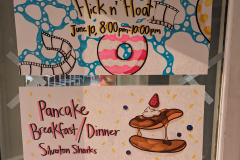 Flick n' Float
June 10, 8:00pm-10:00pm
Pancake
Breakfast/Dinner
Silverton Sharks